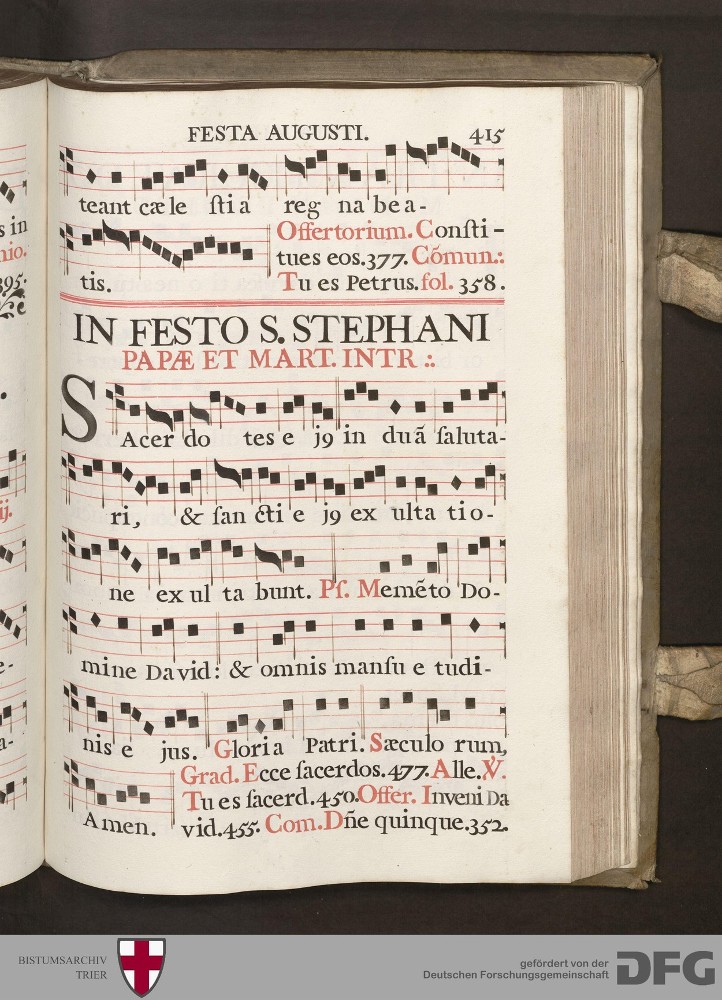 FESTA AUGUSTI. 415
teant cæle ſtia reg na be a-
Offertorium. Conſti-
tues eos. 377. Cõmun.:
tis. Tu es Petrus. fol. 358.
IN FESTO S. STEPHANI
PAPÆ ET MART. INTR .:
SAcer do tes e j9 in duã ſaluta-
ri, & ſan cti e j9 ex ulta tio-
ne ex ul ta bunt. Pſ. Memẽto Do-
mine David: & omnis manſu e tudi-
nis e jus. Gloria Patri. Sæculo rum,
Grad. Ecce ſacerdos. 477. Alle. ℣.
Tu es ſacerd. 450. Offer. Inveni Da
Amen. vid. 455. Com. Dñe quinque. 352.
s in
nio.
395.
ij.
e-
a-
BISTUMSARCHIV
TRIER
gefördert von der
Deutschen Forschungsgemeinschaft
DFG